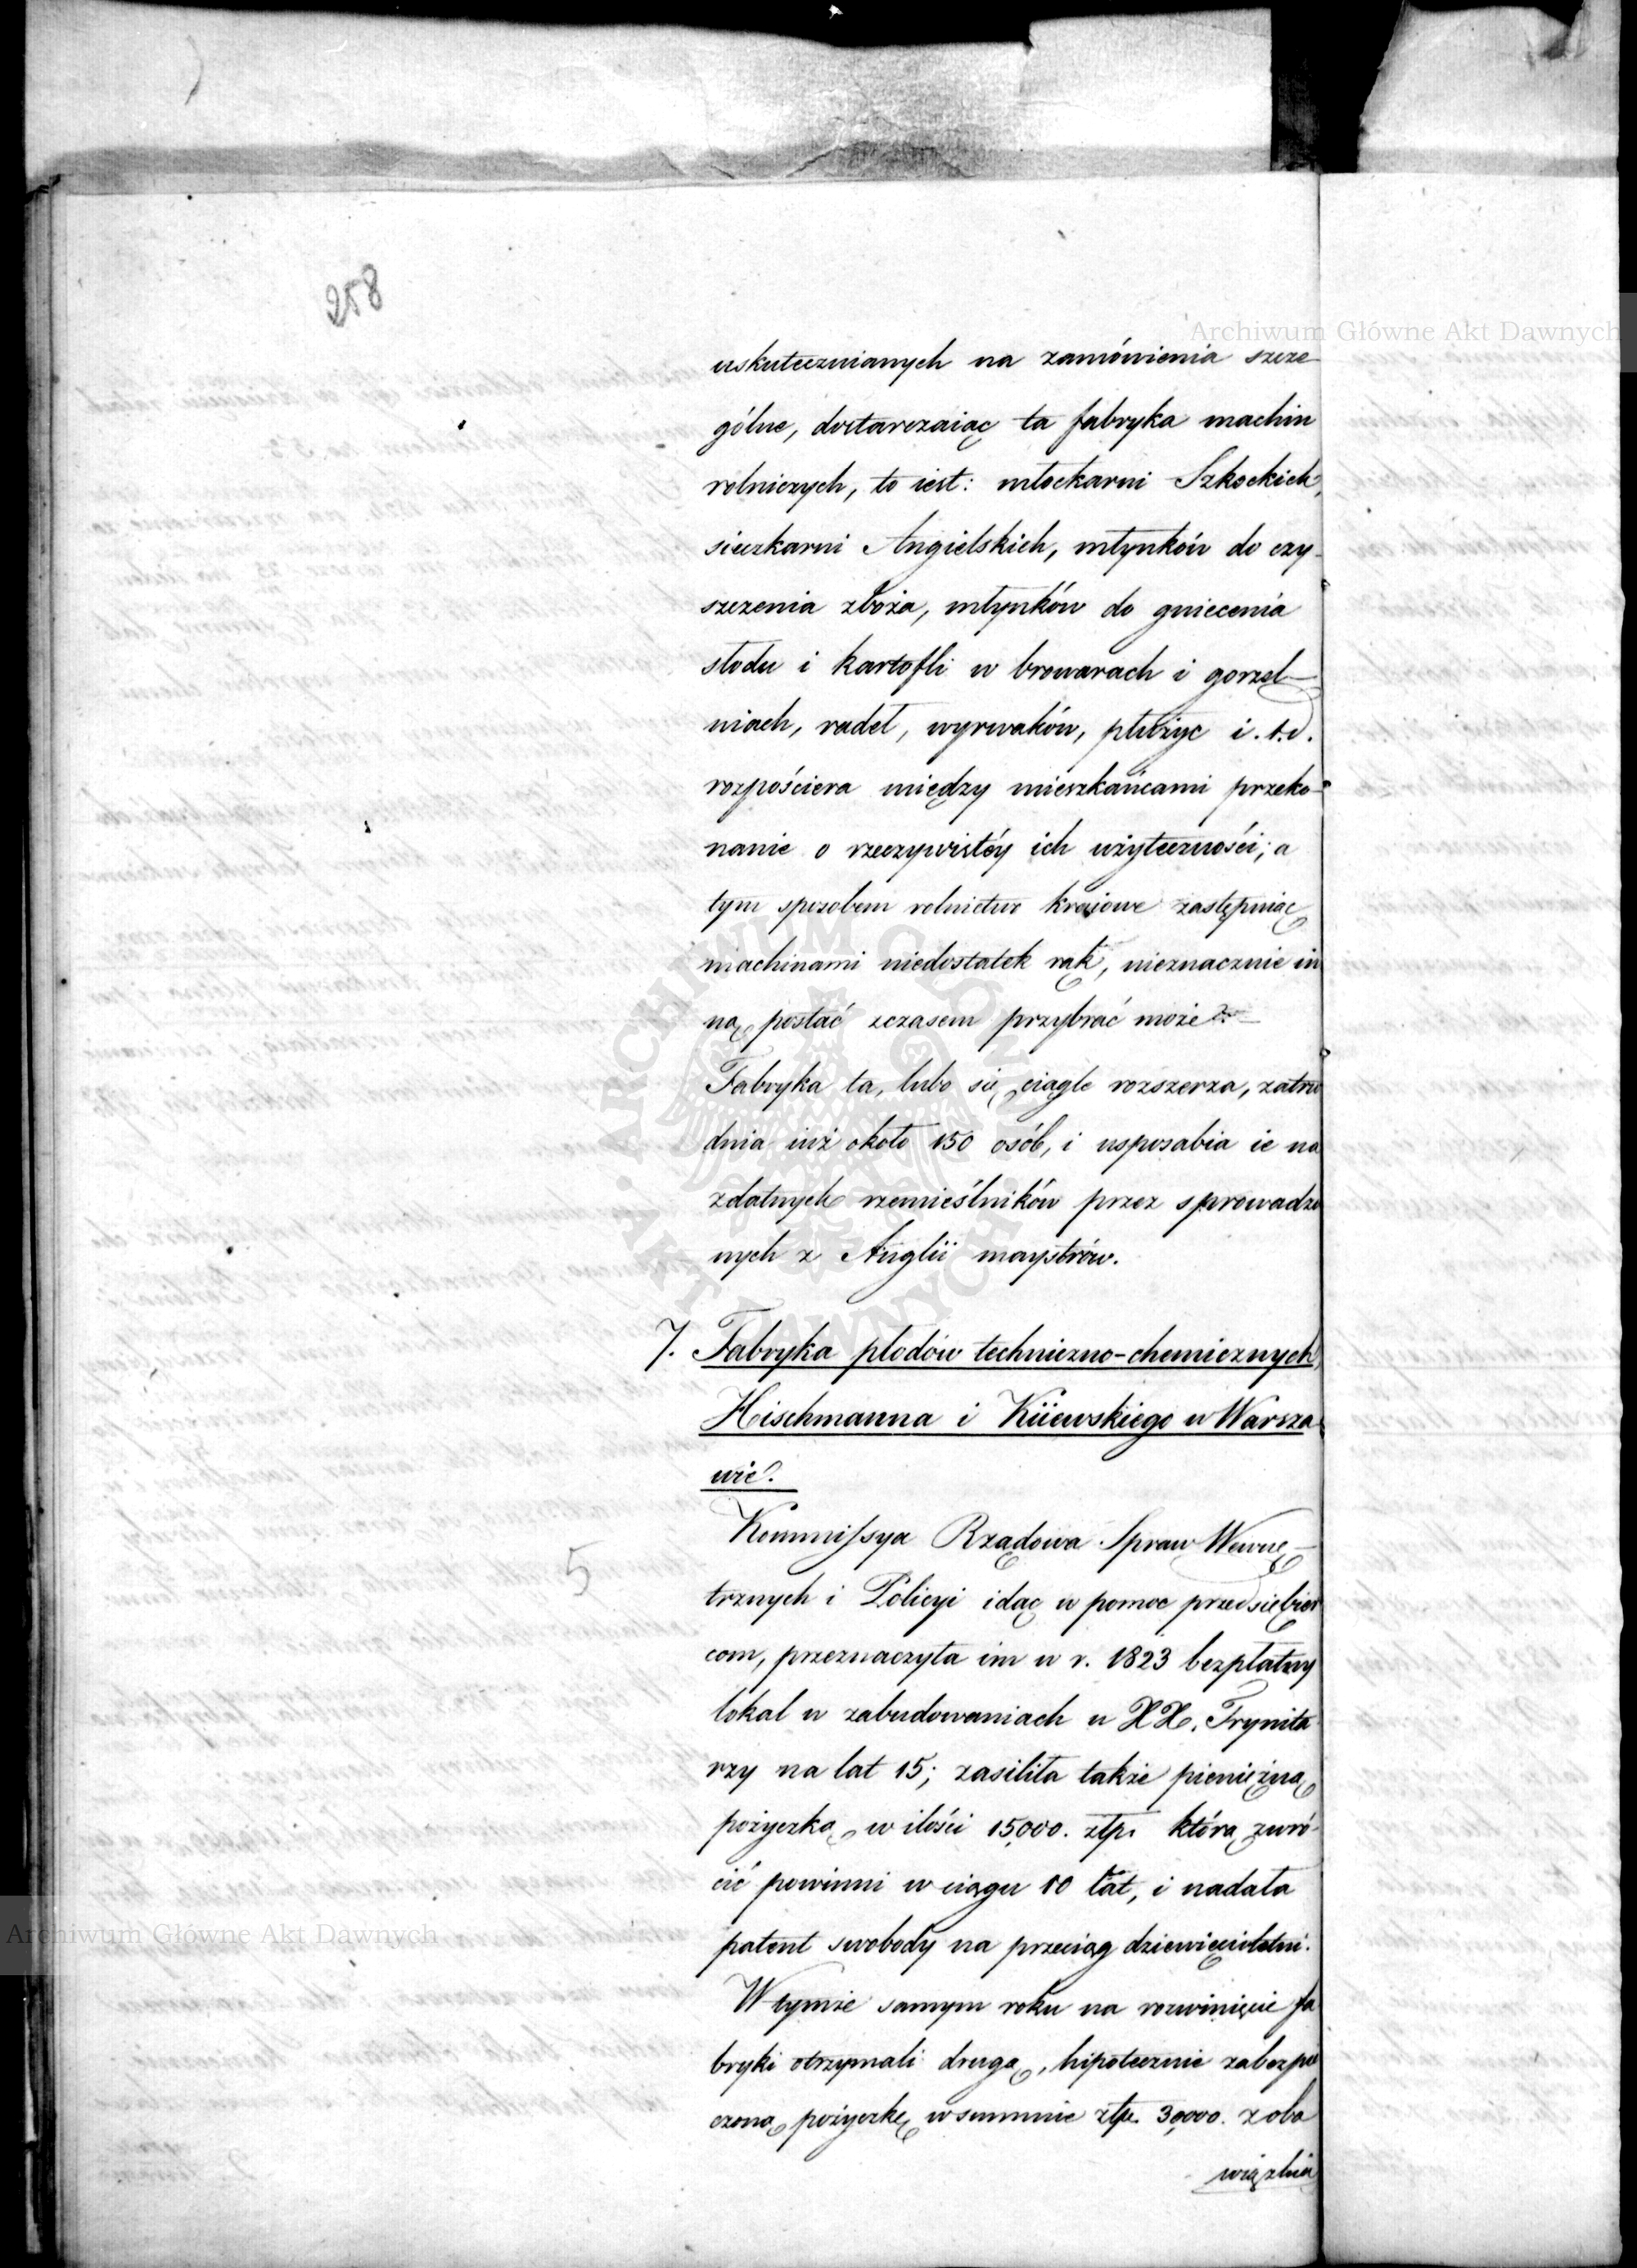 258
Archiwum Główne Akt Dawnych
uskutecznianych na zamówienia szcze-
gólne, dostarczaiąc ta fabryka machin
rolniczych, to iest: młockarni Szkockich,
sieczkarni Angielskich, młynków do czy-
szczenia zboża, młynków do gniecenia
słodu i kartofli w browarach i gorzel-
niach, radeł, wyrwaków, płużyc i.t.d.
rozpościera między mieszkańcami przeko-
nanie o rzeczywistéy ich użyteczności; a
tym sposobem rolnictwo krajowe zastępuiąc
machinami niedostatek rąk, nieznacznie in
ną postać zczasem przybrać może.
Fabryka ta, lubo się ciągle rozszerza, zatru
dnia iuż około 150 osób, i usposabia ie na
zdatnych rzemieślników przez sprowadzo
nych z Anglii maystrów.
7. Fabryka płodów techniczno-chemicznych
Hischmanna i Kiiewskiego w Warsza
wie.
Kommissya Rządowa Spraw Wewnę-
trznych i Policyi idąc w pomoc przedsiębior
com, przeznaczyła im w r. 1823 bezpłatny
lokal w zabudowaniach u XX. Trynita
rzy na lat 15; zasiliła także pieniężną
pożyczką w ilości 15,000. złp. którą zwró-
cić powinni w ciągu 10 lat, i nadała
patent swobody na przeciąg dziewięcioletni.
W tymże samym roku na rozwinięcie fa
bryki otrzymali drugą, hipotecznie zabezpie
czoną pożyczkę w summie złp. 30,000. z obo
wiązkiem
5
Archiwum Główne Akt Dawnych
ARCHIWUM GŁÓWNE AKT DAWNYCH